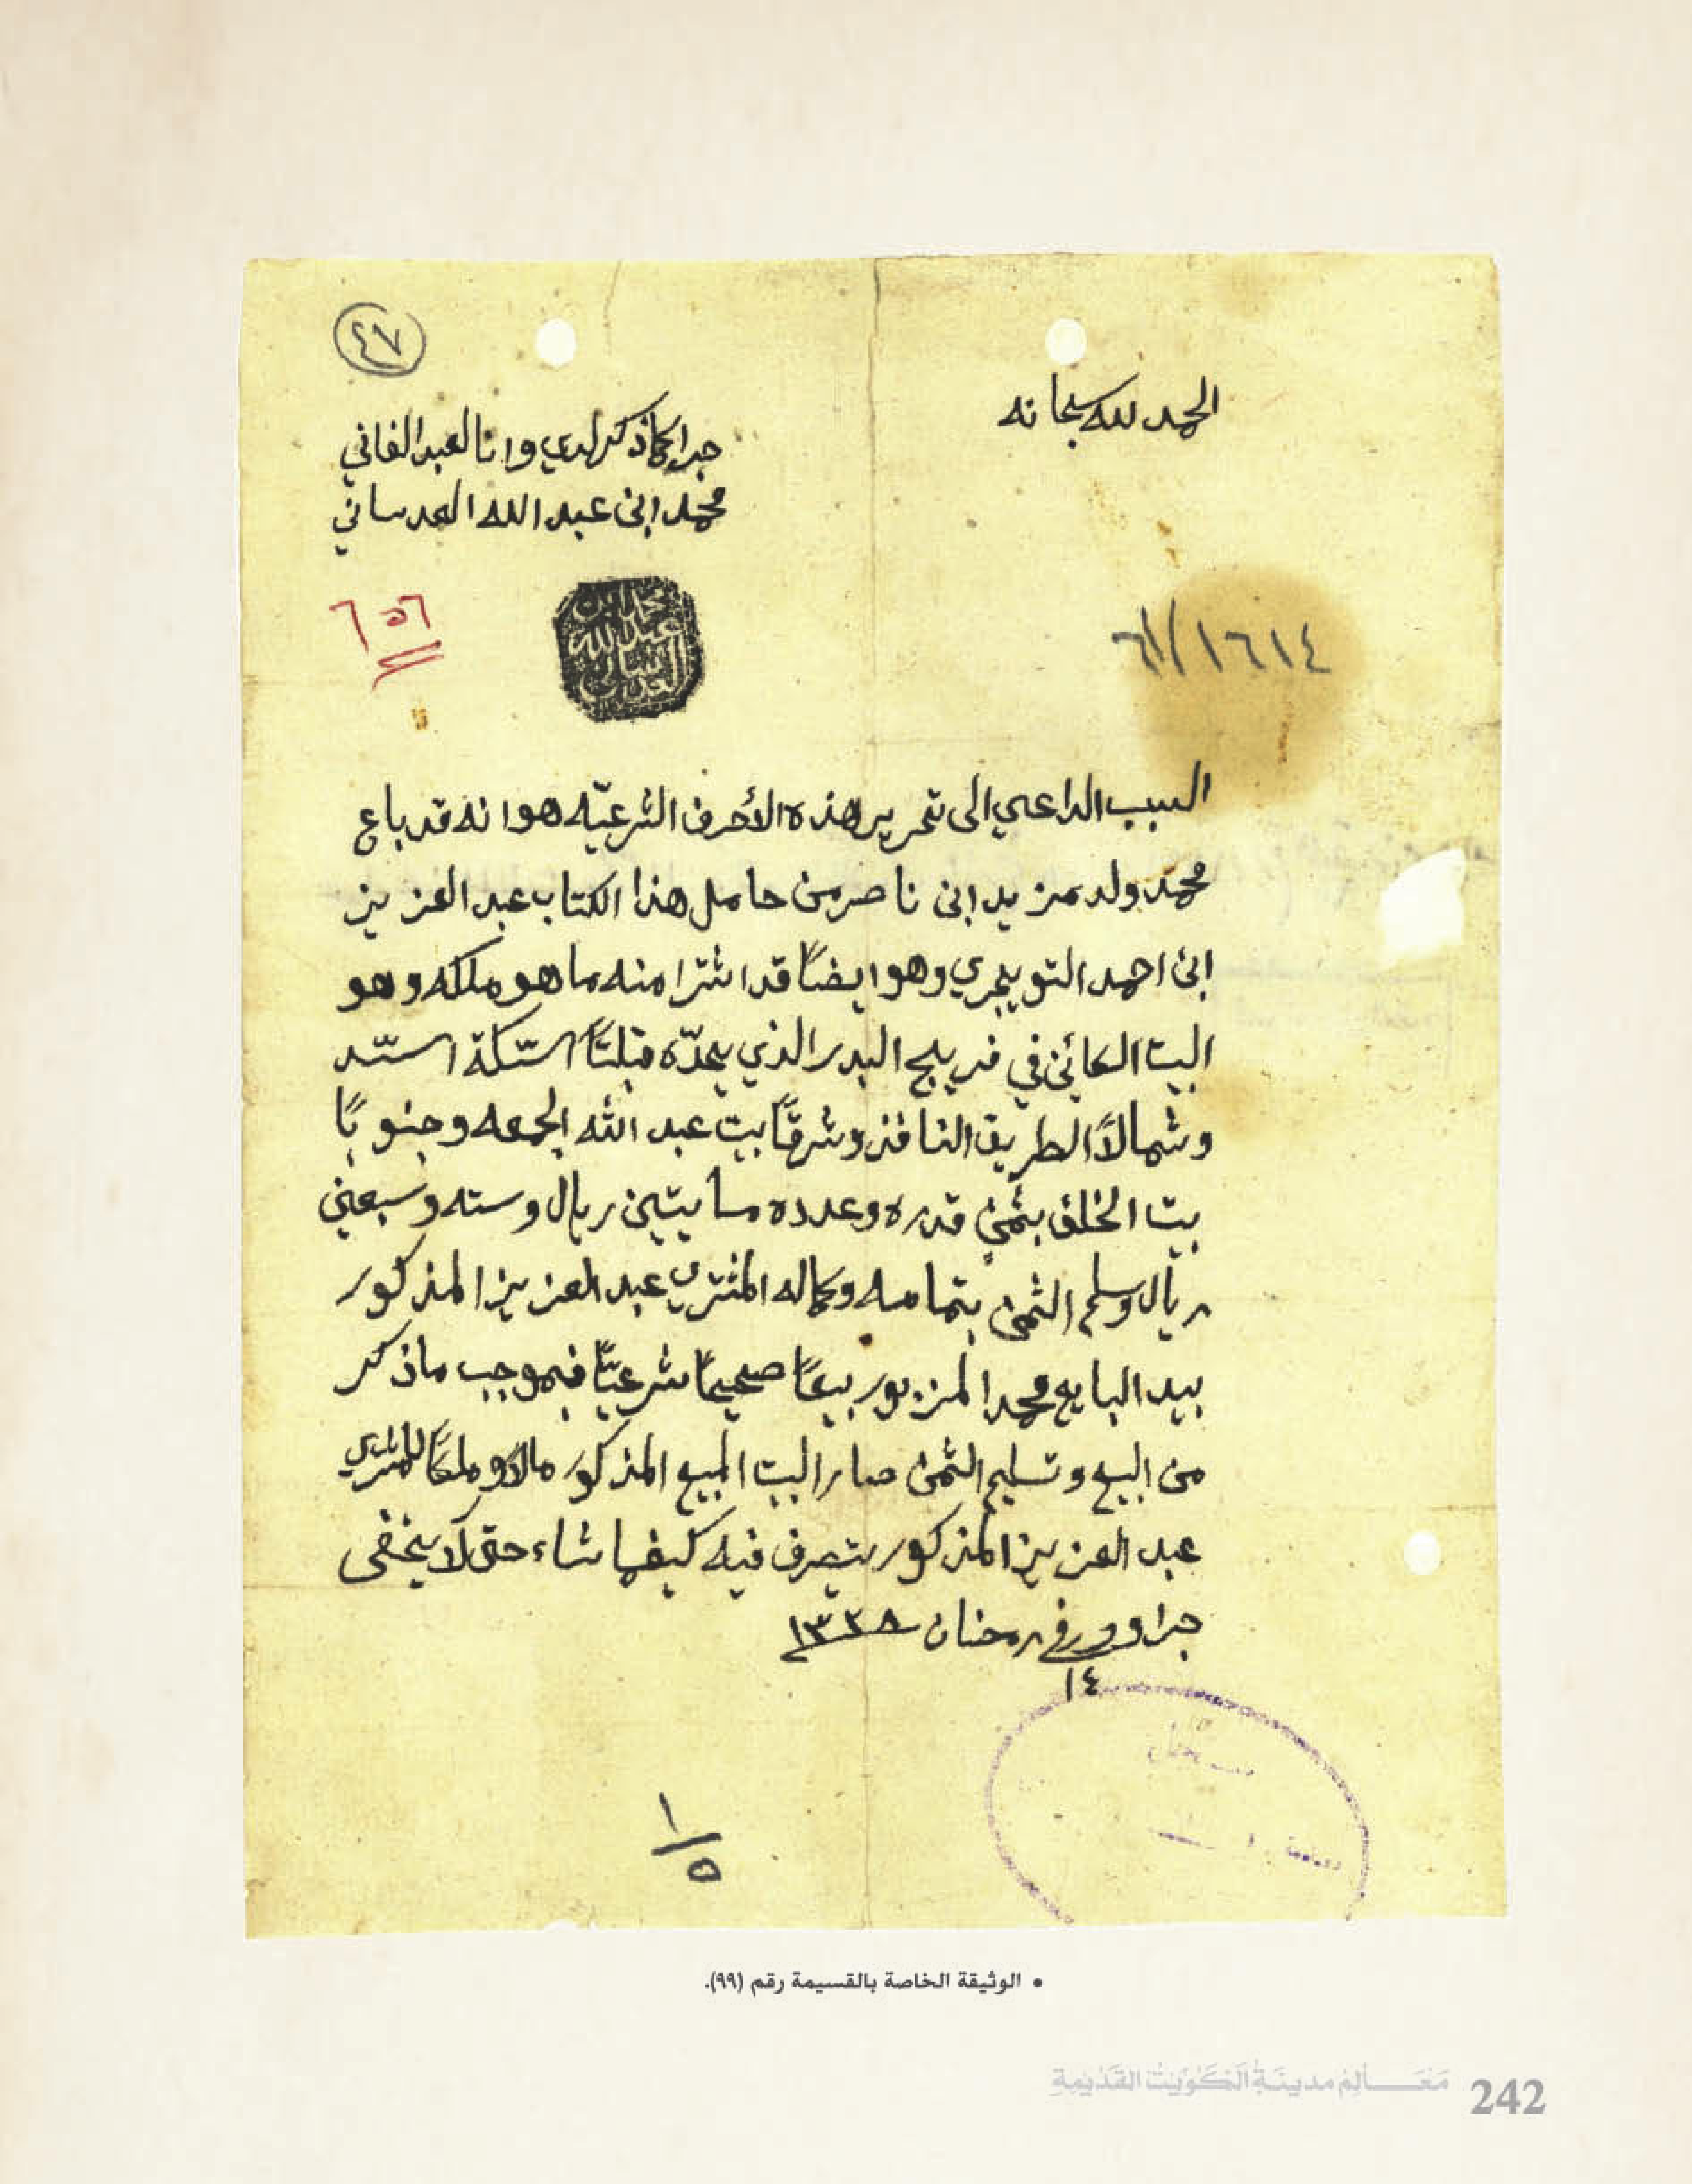 ٤٧
الحمد لله سبحانه
جرا كما ذكر لدي وانا العبد الفاني
محمد ابن عبد الله العدساني
محمد ابن
عبد الله
العدساني
٦٥٦
١٦١٤/٦١
السبب الداعي الى تحرير هذه الأحرف الشرعيّه هو انه قد باع
محمد ولد مزيد ابن ناصر من حامل هذا الكتاب عبد العزيز
ابن احمد التويجري وهو ايضاً قد اشترا منه ما هو ملكه وهو
البيت الكائن في فريج البدر الذي يحدّه قبلتاً السّكة السّد
وشمالاً الطريق النافذ وشرقاً بيت عبد الله الجمعه وجنوباً
بيت الخلف بثمنٍ قدره وعدده مايتين ريال وسته وسبعين
ريال وسلم الثمن بتمامه وكماله المشتري عبد العزيز المذكور
بيد البايع محمد المزبور بيعاً صحيحاً شرعيّاً فبموجب ما ذكر
من البيع وتسليم الثمن صار البيت المبيع المذكور مالاً وملكاً للمشتري
عبد العزيز المذكور يتصرف فيه كيفما شاء حتى لا يخفى
جرا وحرر في رمضان ١٣٣٨
١٤
سجل
١
٥
• الوثيقة الخاصة بالقسيمة رقم (٩٩).
مَعَالِم مدينَة الكُوَيت القَديمة 242